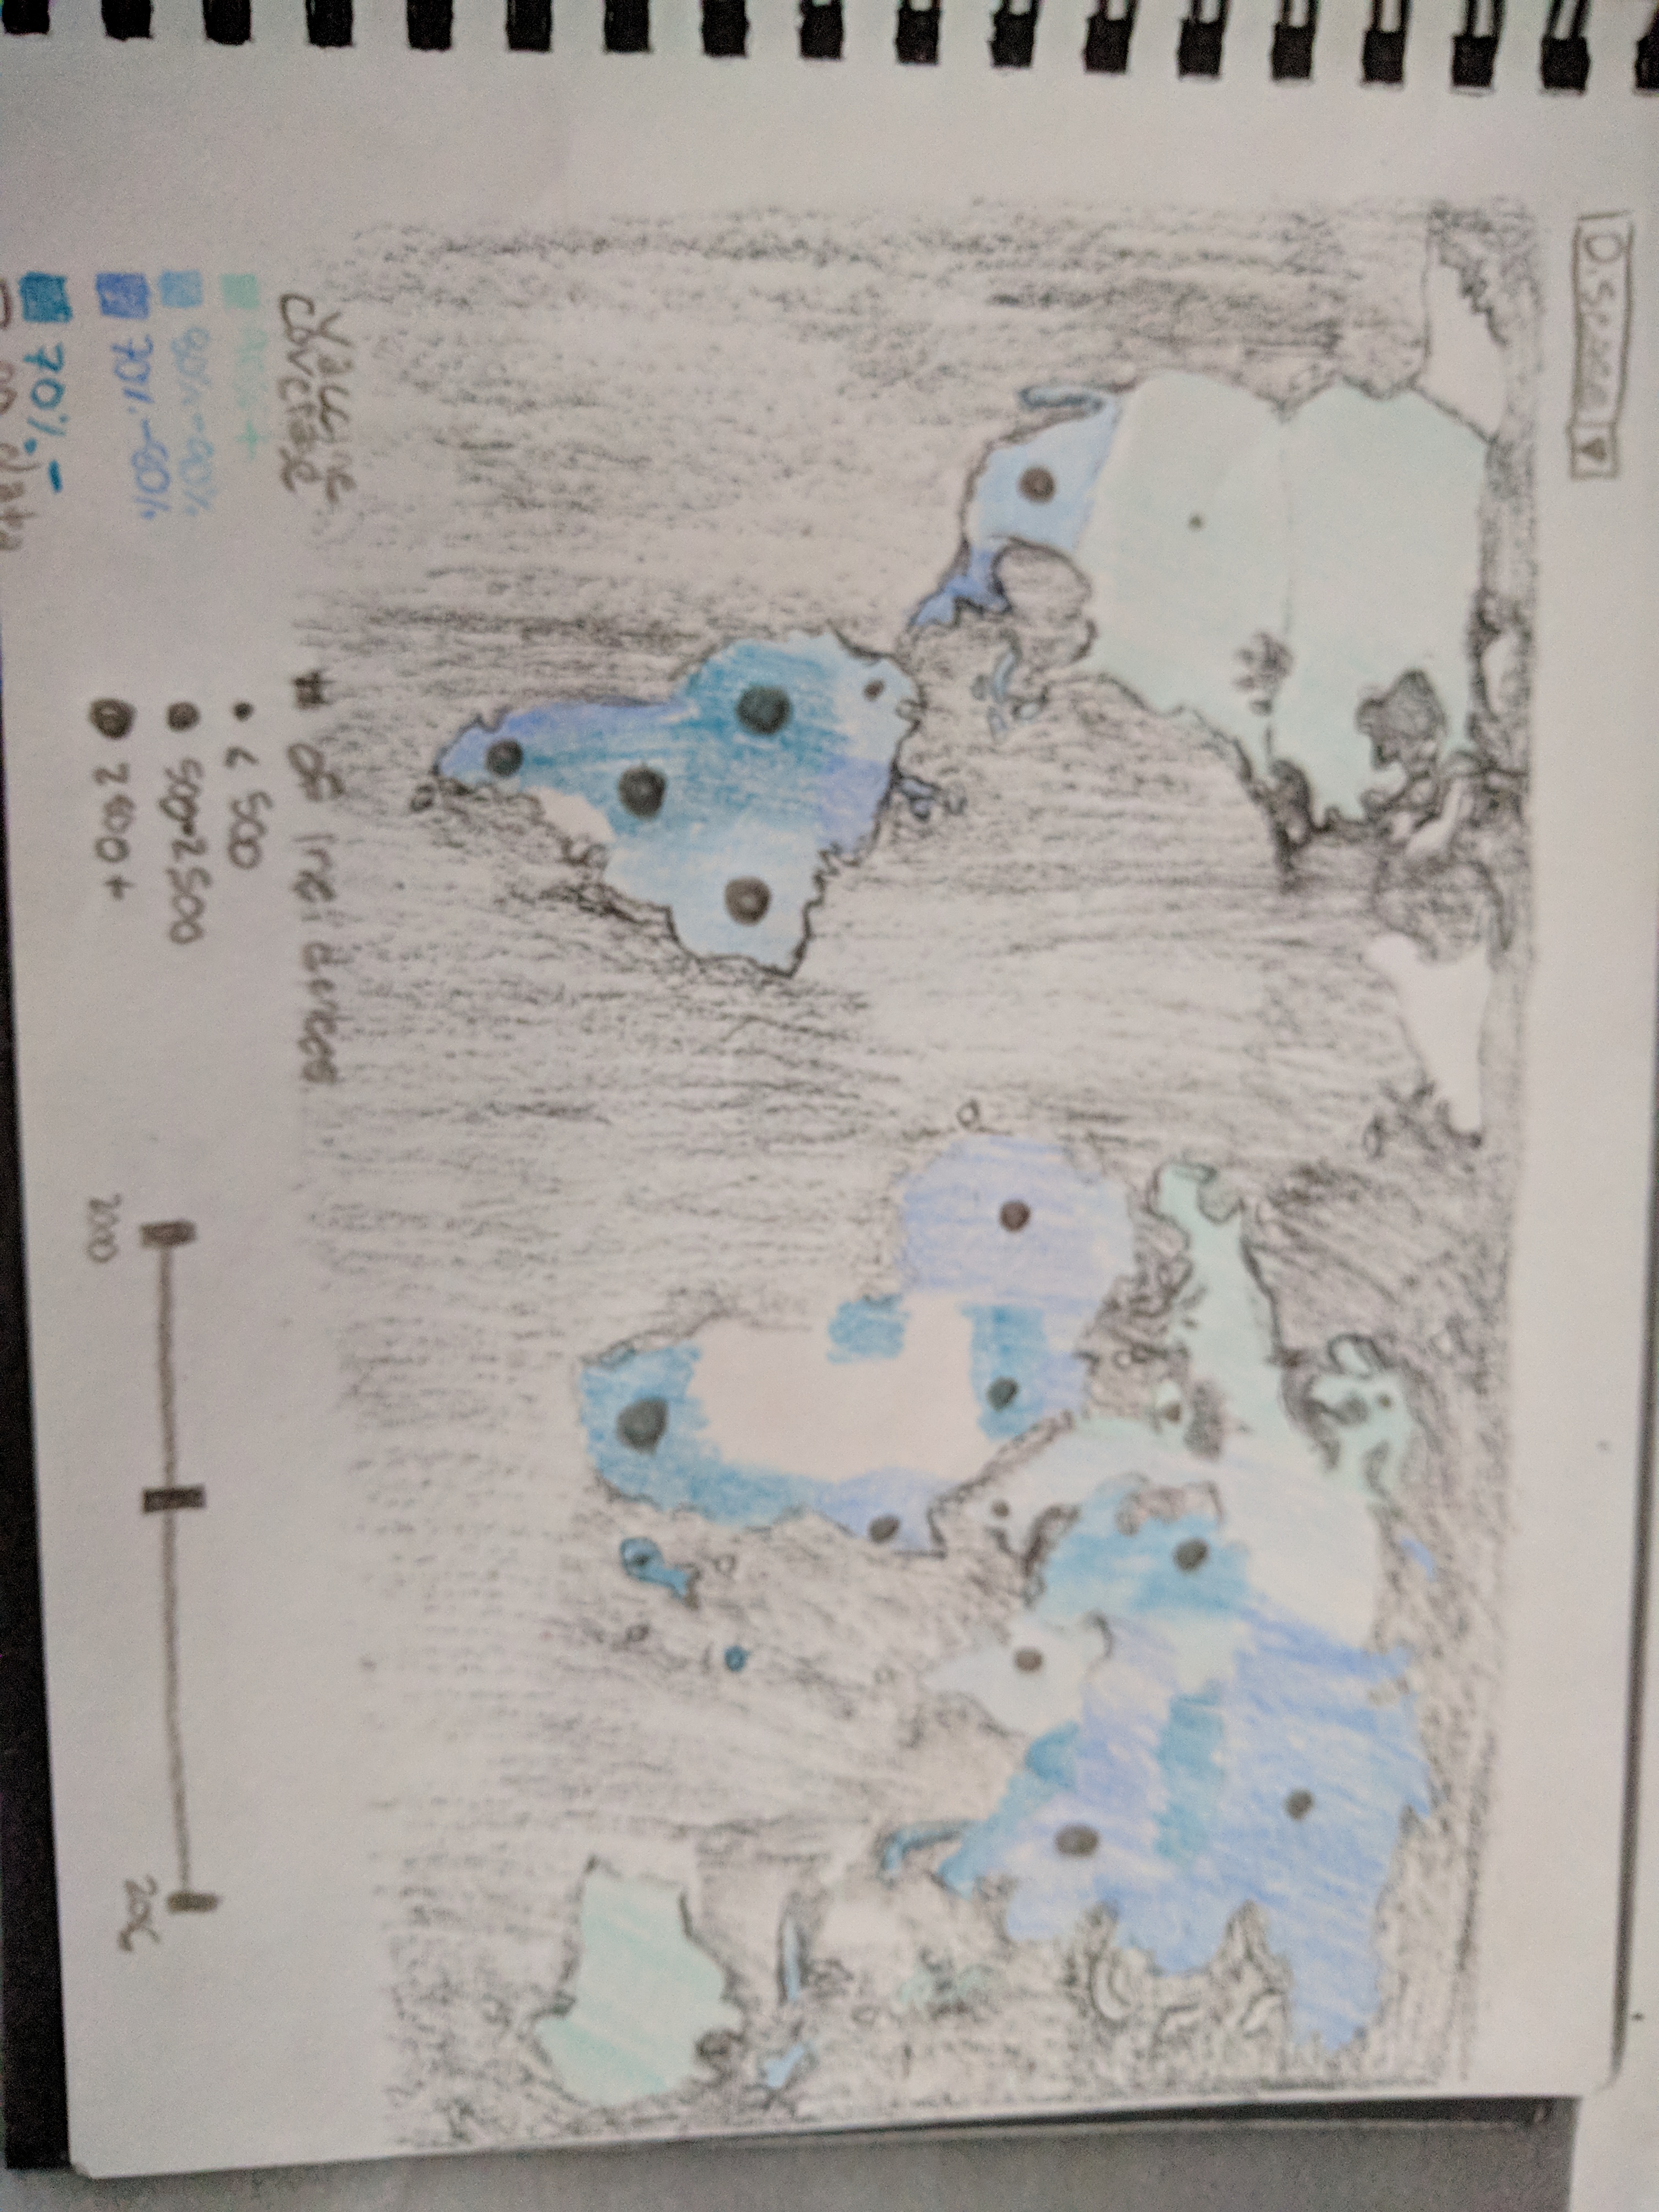 Disease ▼
Vaccine
Coverage
90% +
80%-90%
70%-80%
70% -
no data
# of incidences
< 500
500-2500
2500 +
200